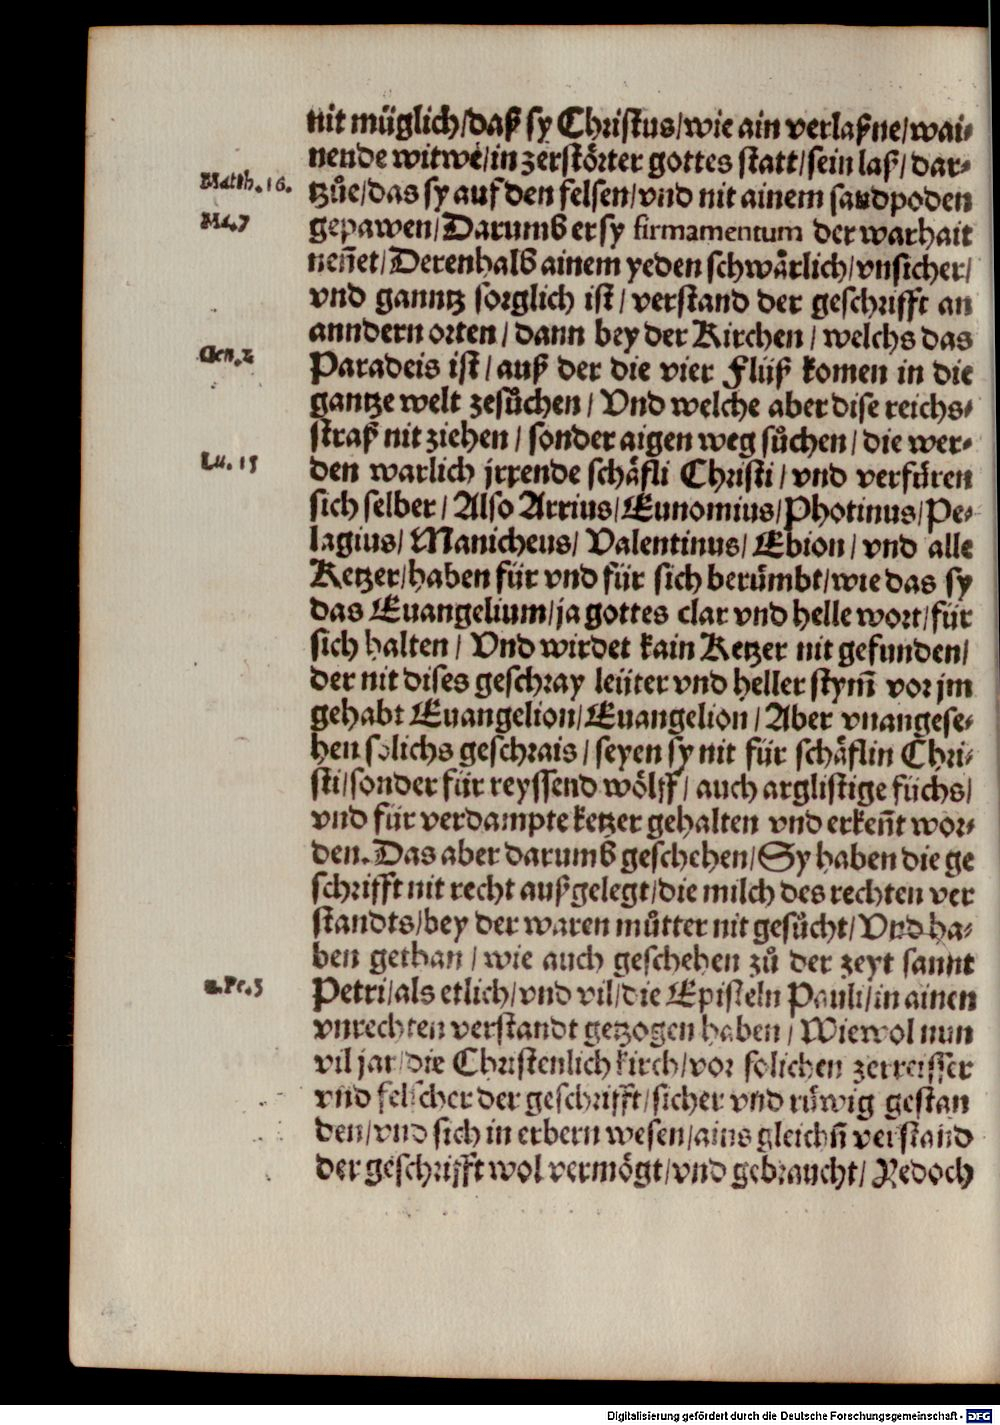 nit müglich/daß sy Christus/wie ain verlaßne/wai⸗
nende witwe/in zerstörter gottes statt/sein laß/dar⸗
Matth.16.
tzůe/das sy auf den felsen/vnd nit ainem sandpoden
Ma.7
gepawen/Darumb er sy firmamentum der warhait
neñet/Derenhalb ainem yeden schwårlich/vnsicher/
vnd ganntz sorglich ist/verstand der geschrifft an
anndern orten/dann bey der Kirchen/welchs das
Gen.2
Paradeis ist/auß der die vier Flüß komen in die
gantze welt zesůchen/Vnd welche aber dise reichs⸗
straß nit ziehen/sonder aigen weg sůchen/die wer⸗
Lu.15
den warlich jrrende schåfli Christi/vnd verfüren
sich selber/Also Arrius/Eunomius/Photinus/Pe⸗
lagius/Manicheus/Valentinus/Ebion/vnd alle
Ketzer/haben für vnd für sich berümbt/wie das sy
das Euangelium/ja gottes clar vnd helle wort/für
sich halten/Vnd wirdet kain Ketzer nit gefunden/
der nit dises geschray leüter vnd heller stym̃ vor jm
gehabt Euangelion/Euangelion/Aber vnangese⸗
hen solichs geschrais/seyen sy nit für schåflin Chri⸗
sti/sonder für reyssend wölff/auch arglistige füchs/
vnd für verdampte ketzer gehalten vnd erkeñt wor⸗
den. Das aber darumb geschehen/Sy haben die ge
schrifft nit recht außgelegt/die milch des rechten ver
standts/bey der waren můtter nit gesůcht/Vnd ha⸗
ben gethan/wie auch geschehen zů der zeyt sannt
2.Pe.3
Petri/als etlich/vnd vil/die Episteln Pauli/in ainen
vnrechten verstandt getzogen haben/Wiewol nun
vil jar/die Christenlich kirch/vor solichen zerreisser
vnd felscher der geschrifft/sicher vnd rüwig gestan
den/vnd sich in erbern wesen/ains gleichñ verstand
der geschrifft wol vermögt/vnd gebraucht/Yedoch
Digitalisierung gefördert durch die Deutsche Forschungsgemeinschaft - DFG